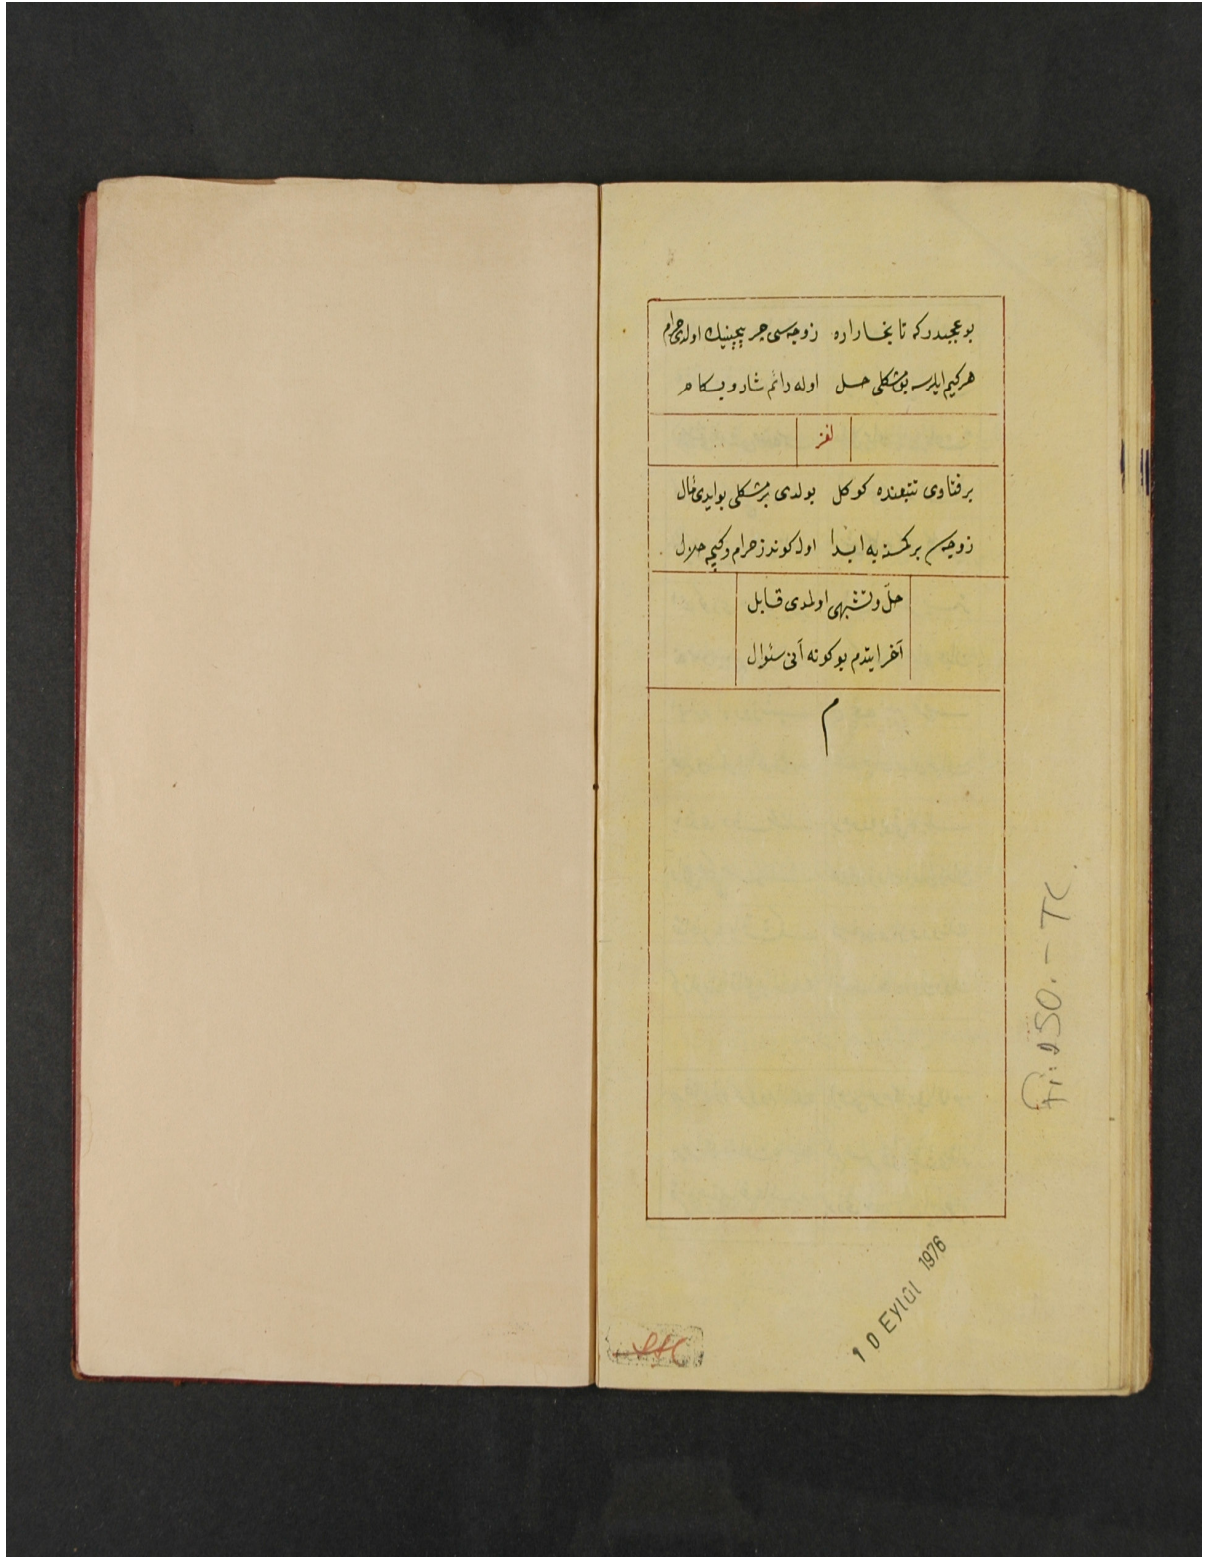 بو عجبدركه تا بخارا ره زوجه‌سی هر اولدی حرام
هر كیم ایلرسه بو مشكلی حل اوله دائم شاد و بكام
لغز
بر فتاوی تتبعنده كوكل بولدی بر مشكلی بو ایدی مآل
زوجه‌سی بر كمسنه‌یه ابدا اوله كوندز حرام و كیجه حلال
حلّ و اولمدی قابل
آخر ایتدم بو كونه آنی سئوال
م
Fi: 250.- TL.
10 EYLÜL 1976